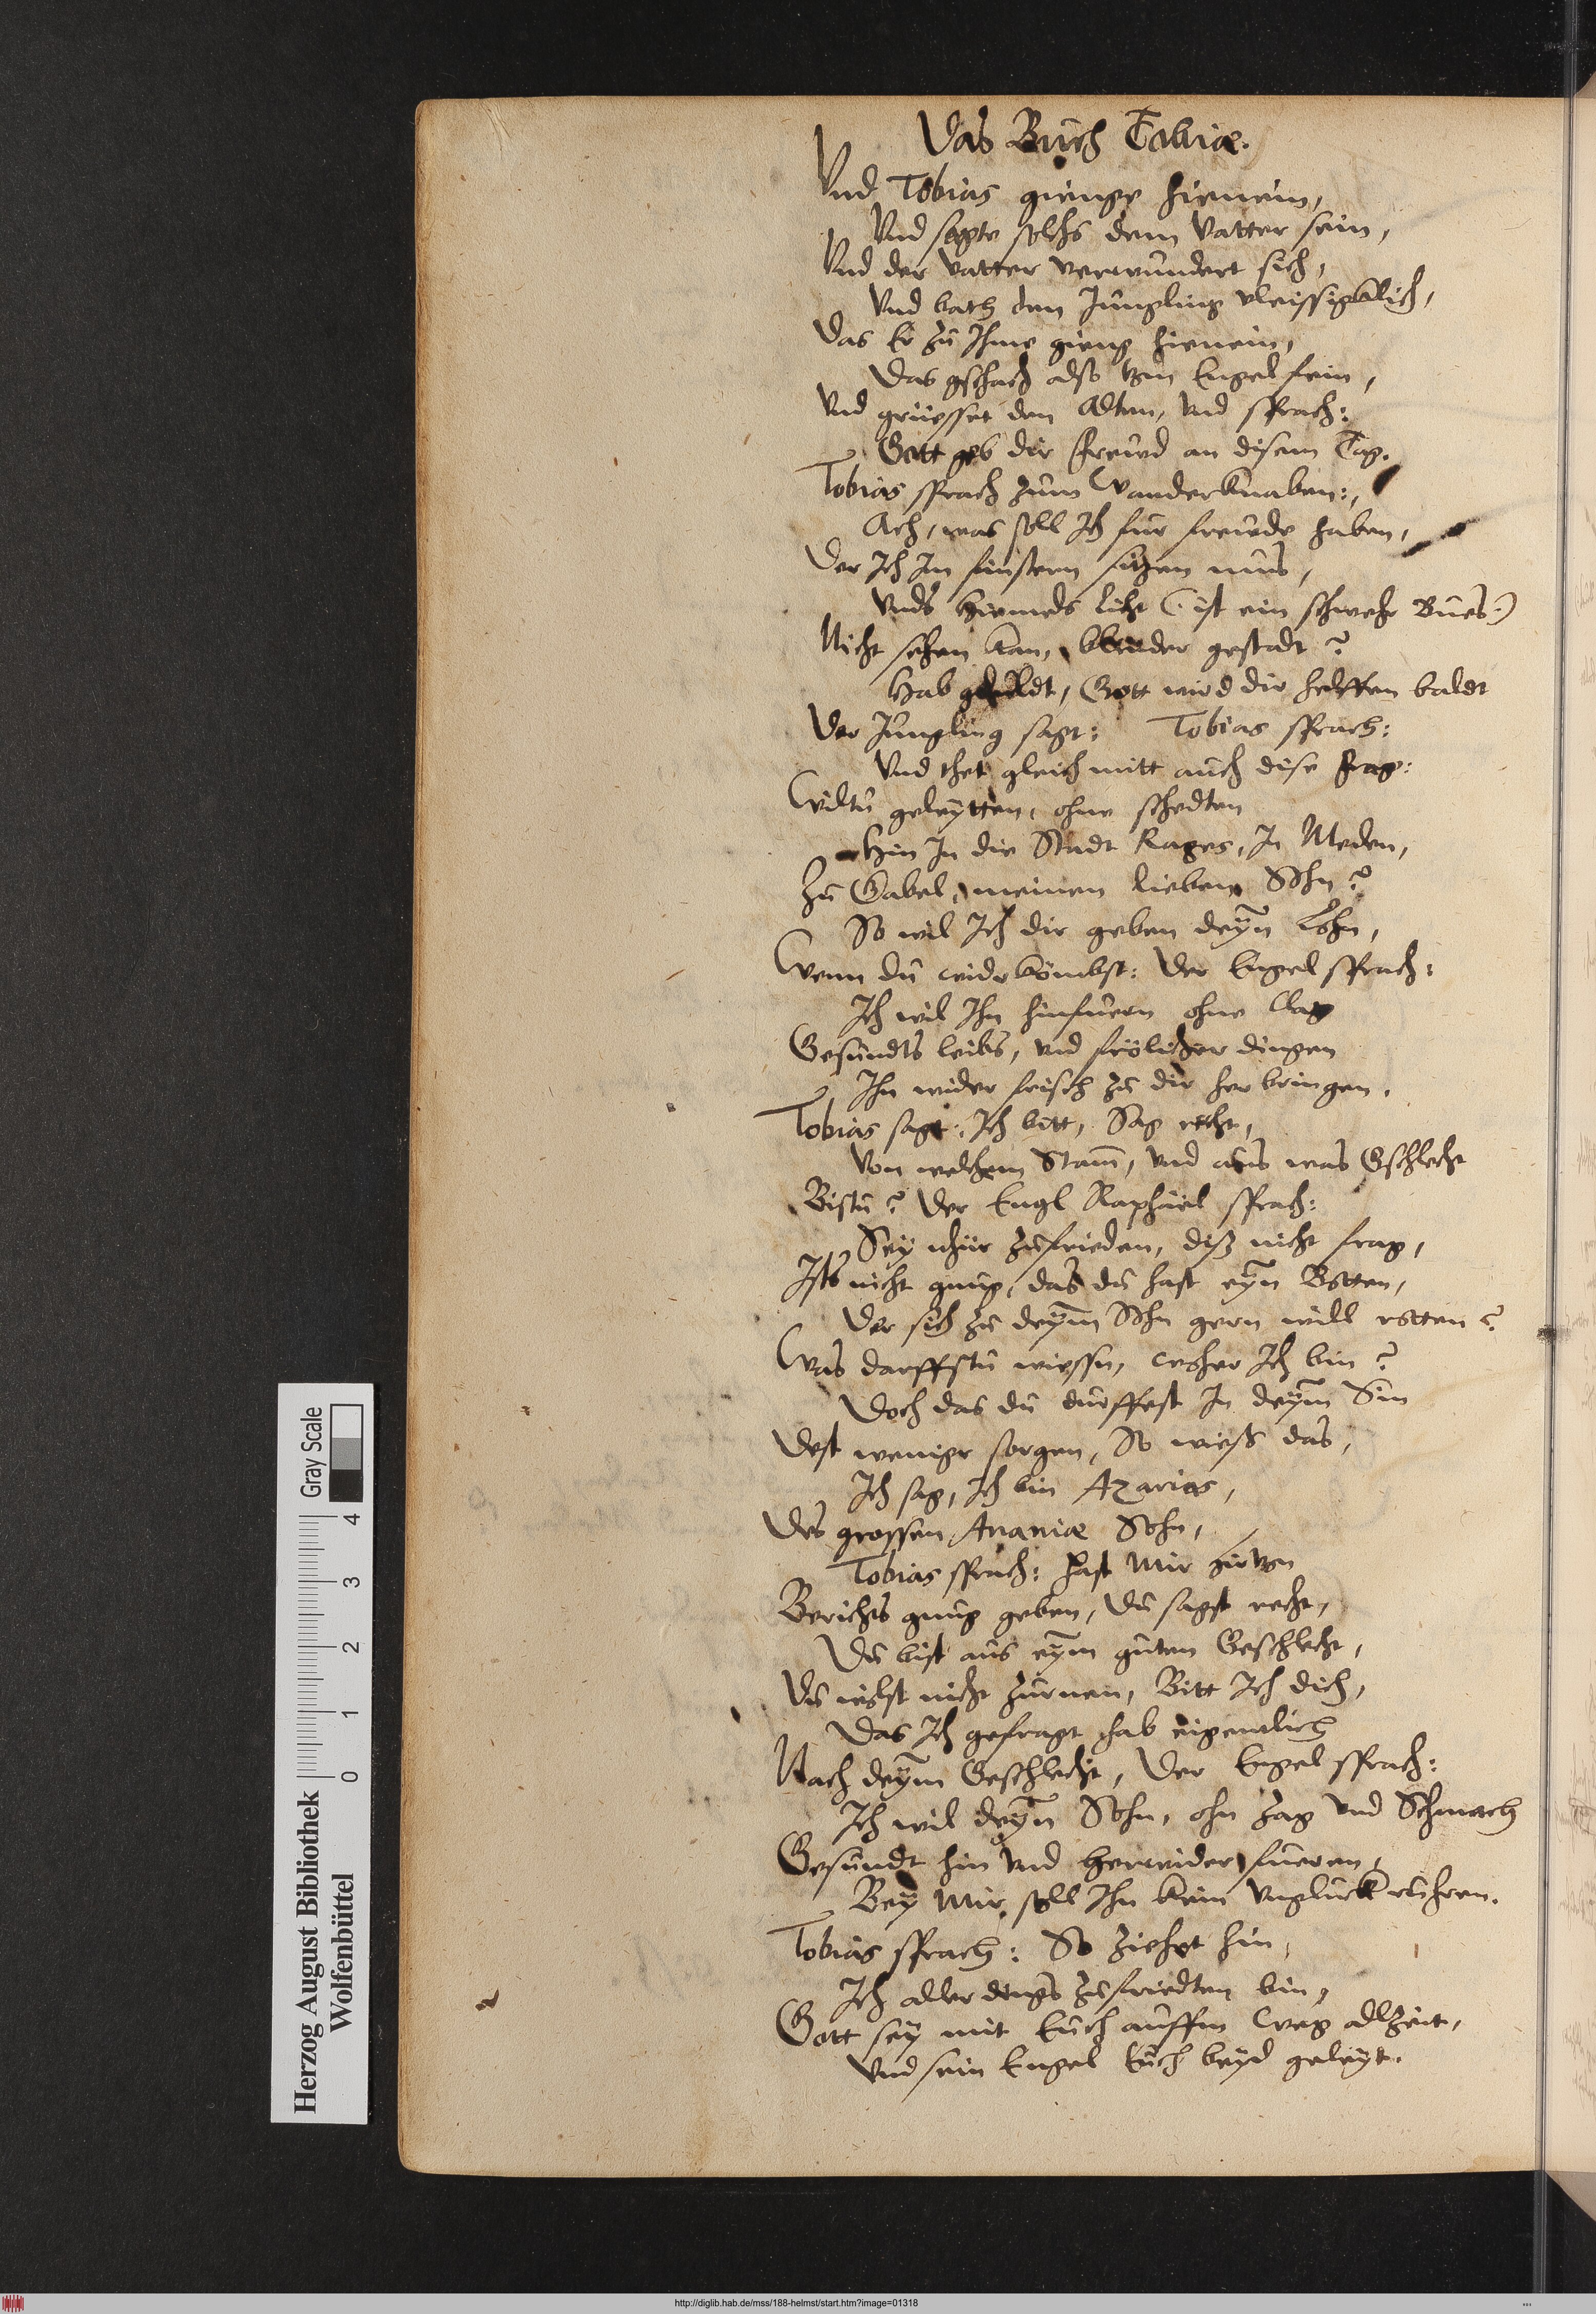 Das Buch Tobiæ.
Vnd Tobias gienge hienein,
Vnd sagte solchs dem Vatter sein,
Vnd der vatter verwundert sich,
Vnd bath den Jüngling vleissigklich,
Das Er zu Ihme gieng hienein,
Das gschach also vom Engel fein,
Vnd grüesset den Alten, vnd sprach:
Gott geb dir freud an disem Tag.
Tobias sprach zum Wanderknaben:
Ach, was soll Ich für freude haben,
Der Ich Im finstern sitzen mus,
Vnds Himels licht (ist ein schwehr Bues)
Nicht sehen kan, gestadt?
Hab geduldt, Gott wird dir helffen baldt
Der Jüngling sagt: Tobias sprach:
Vnd thet gleich mitt auch dise frag:
Wiltu geleytten, ohne schedten
Hin In die Stadt Rages, In Meden,
Zu Gabel, meinen lieben Sohn?
So wil Ich dir geben deyn̄ Lohn,
Wenn du widr kömbst: Der Engel sprach:
Ich wil Ihn hinfüern ohne Clag
Gesundts leibs, vnd frölicher dingen
Ihn wider frisch zu dir her bringen.
Tobias sagt: Ich bitt, Sag recht,
Von welchem Stam̄, vnd aus was Gschlecht
Bistu? Der Engl Raphäel sprach:
Sey nhür zufrieden, diß nicht frag,
Ists nicht gnug, das du hast eyn̄ Botten,
Der sich zu deym̄ Sohn gern will rotten?
Was darffstu wiessn, woher Ich bin?
Doch das du durffest In deym̄ Sin
Dest weniger sorgen, So wieß das,
Ich sag, Ich bin Azarias,
Des grossen Ananiæ Sohn,
Tobias sprach: hast Mir hirvon
Berichts gnug geben, Du sagst recht,
Du bist aus eym̄ guten Geschlecht,
Du wolst nicht zurnen, Bitt Ich dich,
Das Ich gefragt hab eigentlich
Nach deym̄ Geschlecht, Der Engel sprach:
Ich wil deyn̄ Sohn, ohn Zag vnd Schmach
Gesundt hin vnd herwider fueren,
Bey Mir soll Ihn kein vnglück rühren.
Tobias sprach: So ziehet hin,
Ich aller dings zufriedten bin,
Gott sey mit Euch auffm weg allzeit,
Vnd sein Engel Euch beyd geleyt.
Herzog August Bibliothek
Wolfenbüttel
0 1 2 3 4
Gray Scale
http://diglib.hab.de/mss/188-helmst/start.htm?image=01318